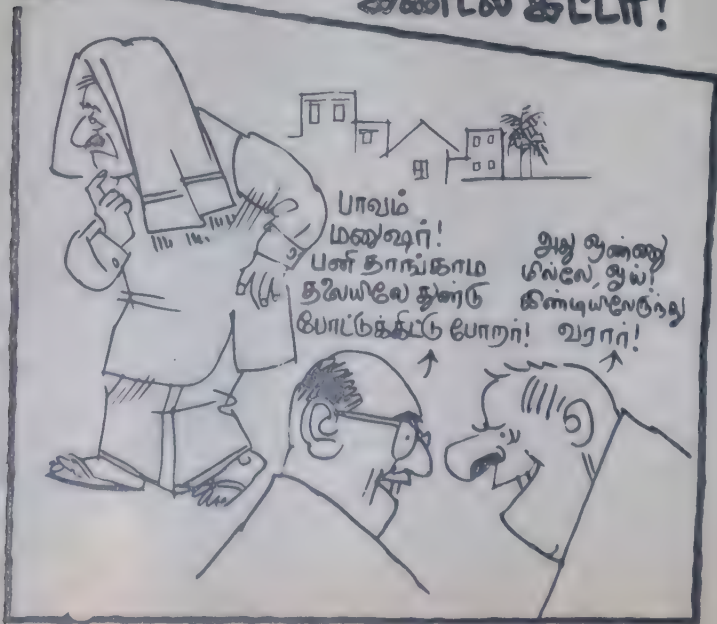 கட்டா!
பாவம்
மனுஷர்!
பனி தாங்காம
தலையிலே துண்டு
போட்டுக்கிட்டு போறார்!
அது ஒண்ணு
மில்லே, ஓய்!
கிண்டியிலேருந்து
வரார்!